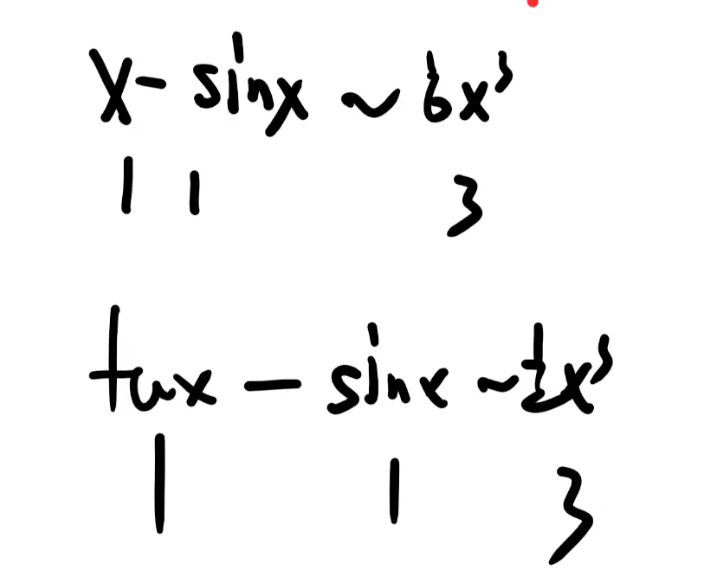 x - sinx ~ 1/6 x³
1 1 3
tanx - sinx ~ 1/2 x³
1 1 3